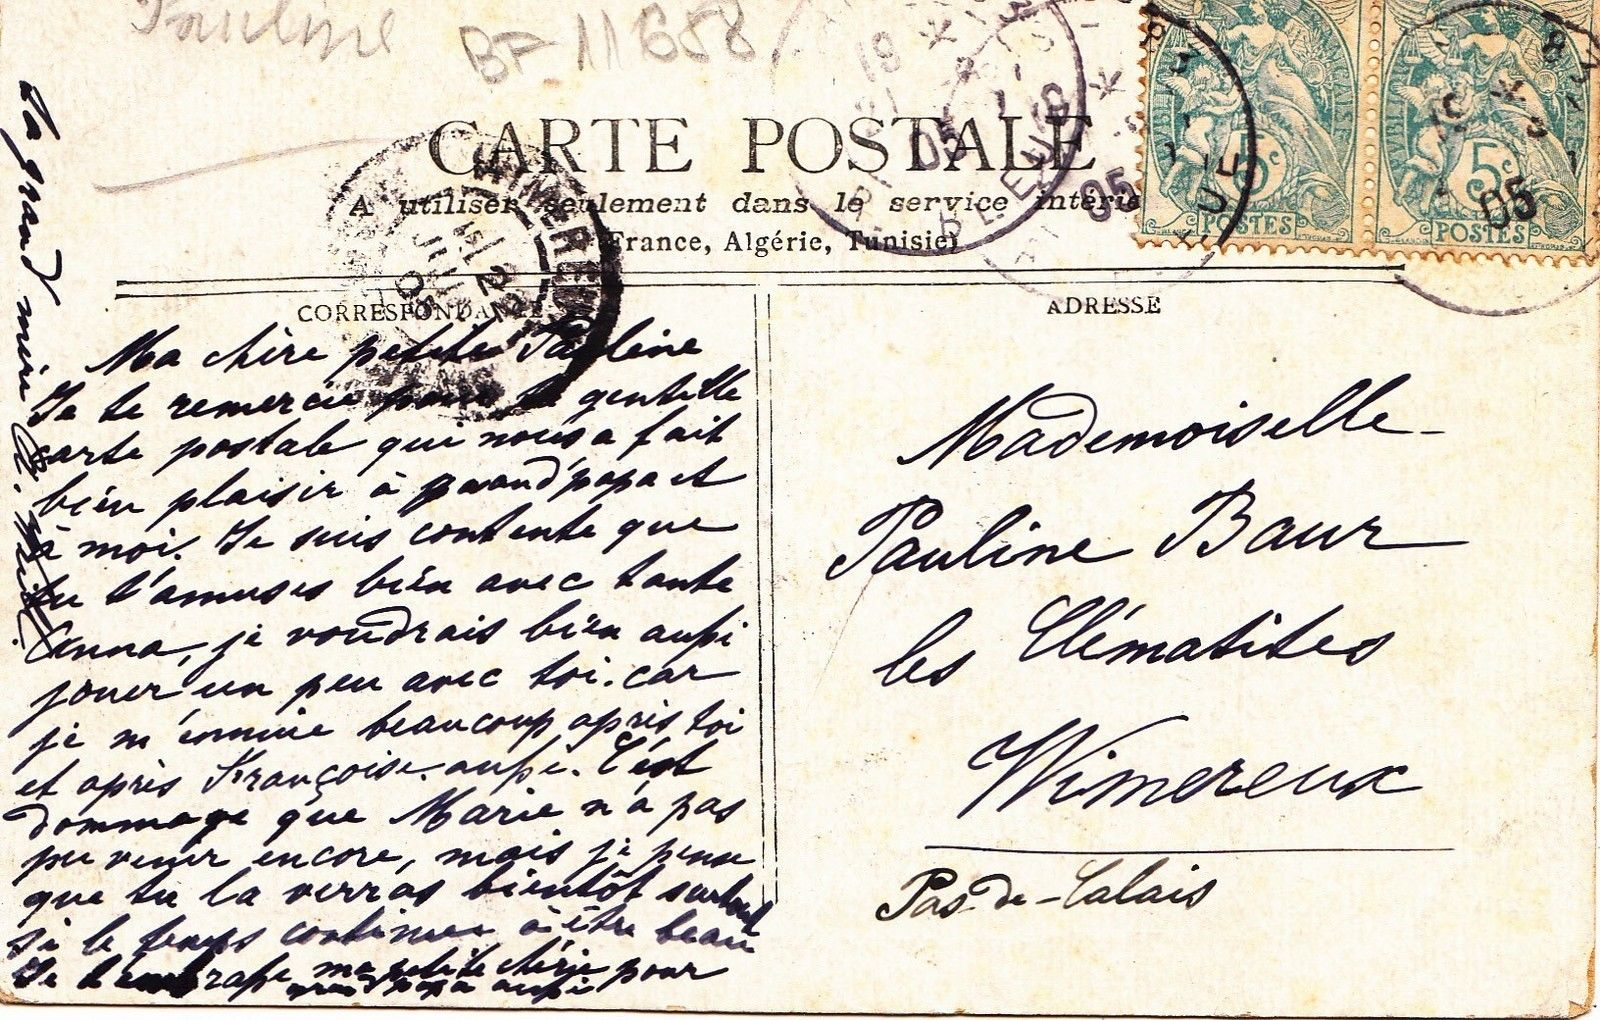 Pauline
BF 11658
CARTE POSTALE
A utiliser seulement dans le service intérie
(France, Algérie, Tunisie)
CORRESPONDANCE
ADRESSE
Ma chère petite Pauline
Je te remercie pour ta gentille
carte postale qui nous a fait
bien plaisir à grand'papa et
à moi. Je suis contente que
tu t'amuses bien avec tante
Anna, je voudrais bien aussi
jouer un peu avec toi. car
je m'ennuie beaucoup après toi
et après Françoise aussi. C'est
dommage que Marie n'a pas
pu venir encore, mais je pense
que tu la verras bientôt surtout
si le temps continue à être beau
Je t'embrasse ma petite chérie pour
grand papa aussi
La grand mère
Mademoiselle
Pauline Baur
les Clématites
Wimereux
Pas-de-Calais
5c
POSTES
5c
POSTES
05
05